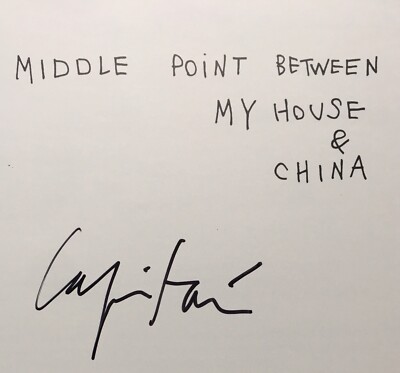 MIDDLE POINT BETWEEN
MY HOUSE
&
CHINA
Capitán